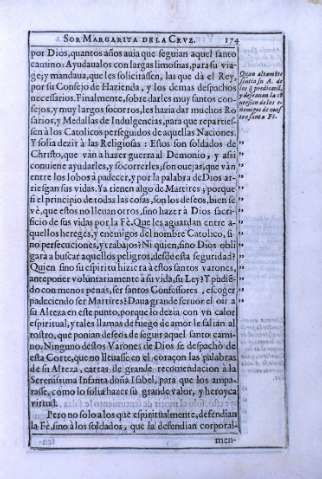 SOR MARGARITA DE LA CRVZ. 174
por Dios, quantos años auia que seguian aquel santo
camino: Ayudaualos con largas limosnas, para su via-
ge; y mandaua, que les solicitassen, las que dà el Rey,
por su Consejo de Hazienda, y los demas despachos
necessarios. Finalmente, sobre darles muy santos con-
sejos, y muy largos socorros, les hazia dar muchos Ro-
sarios, y Medallas de Indulgencias, para que reparties-
sen à los Catolicos perseguidos de aquellas Naciones.
Y solia dezir à las Religiosas: Estos son soldados de
Christo, que van à hazer guerra al Demonio, y assi
conuiene ayudarles, y socorrerles; son ouejas, que vàn
entre los lobos à padecer, y por la palabra de Dios ar-
riesgan sus vidas. Ya tienen algo de Martires; porque
si el principio de todas las cosas, son los deseos, bien se
vè, que estos no lleuan otros, sino hazer à Dios sacri-
ficio de sus vidas por la Fè. Que les aguardan entre a-
quellos hereges, y enemigos del nombre Catolico, si-
no persecuciones, y trabajos? Ni quien, sino Dios obli-
gara à buscar aquellos peligros, desde esta seguridad?
Quien sino su espiritu hiziera à estos santos varones,
anteponer voluntariamente à su vida, su Ley? Y pudiē-
do con menos penas, ser santos Confessores, escoger
padeciendo ser Martires? Daua grande feruor el oir à
su Alteza en este punto, porque lo dezia con vn calor
espiritual, y tales llamas de fuego de amor le salian al
rostro, que ponian deseos de seguir aquel santo cami-
no. Ninguno destos Varones de Dios se despachò de
esta Corte, que no lleuasse en el coraçon las palabras
de su Alteza, cartas de grande recomendacion à la
Serenissima Infanta doña Isabel, para que los ampa-
rasse, como lo solia hazer su grande valor, y heroyca
virtud.
Pero no solo à los que espiritualmente, defendian
la Fè, sino à los soldados, que la defendian corporal-
men-
Quan altamēte
sentia su A. de